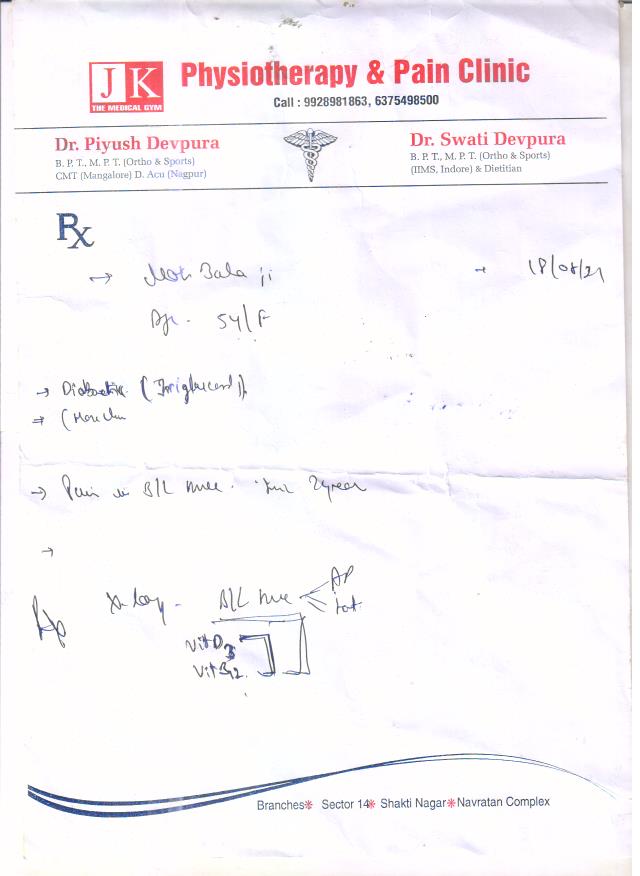 JK
THE MEDICAL GYM
Physiotherapy & Pain Clinic
Call : 9928981863, 6375498500
Dr. Piyush Devpura
B. P. T., M. P. T. (Ortho & Sports)
CMT (Mangalore) D. Acu (Nagpur)
Dr. Swati Devpura
B. P. T., M. P. T. (Ortho & Sports)
(IIMS, Indore) & Dietitian
Rx
→ Bala ji → 18/08/21
Age - 54/F
→
→
→ Pain in B/L knee. 2 year
→
X-Ray - B/L knee < AP
Lat.
Vit D3
Vit B12
Branches* Sector 14* Shakti Nagar*Navratan Complex